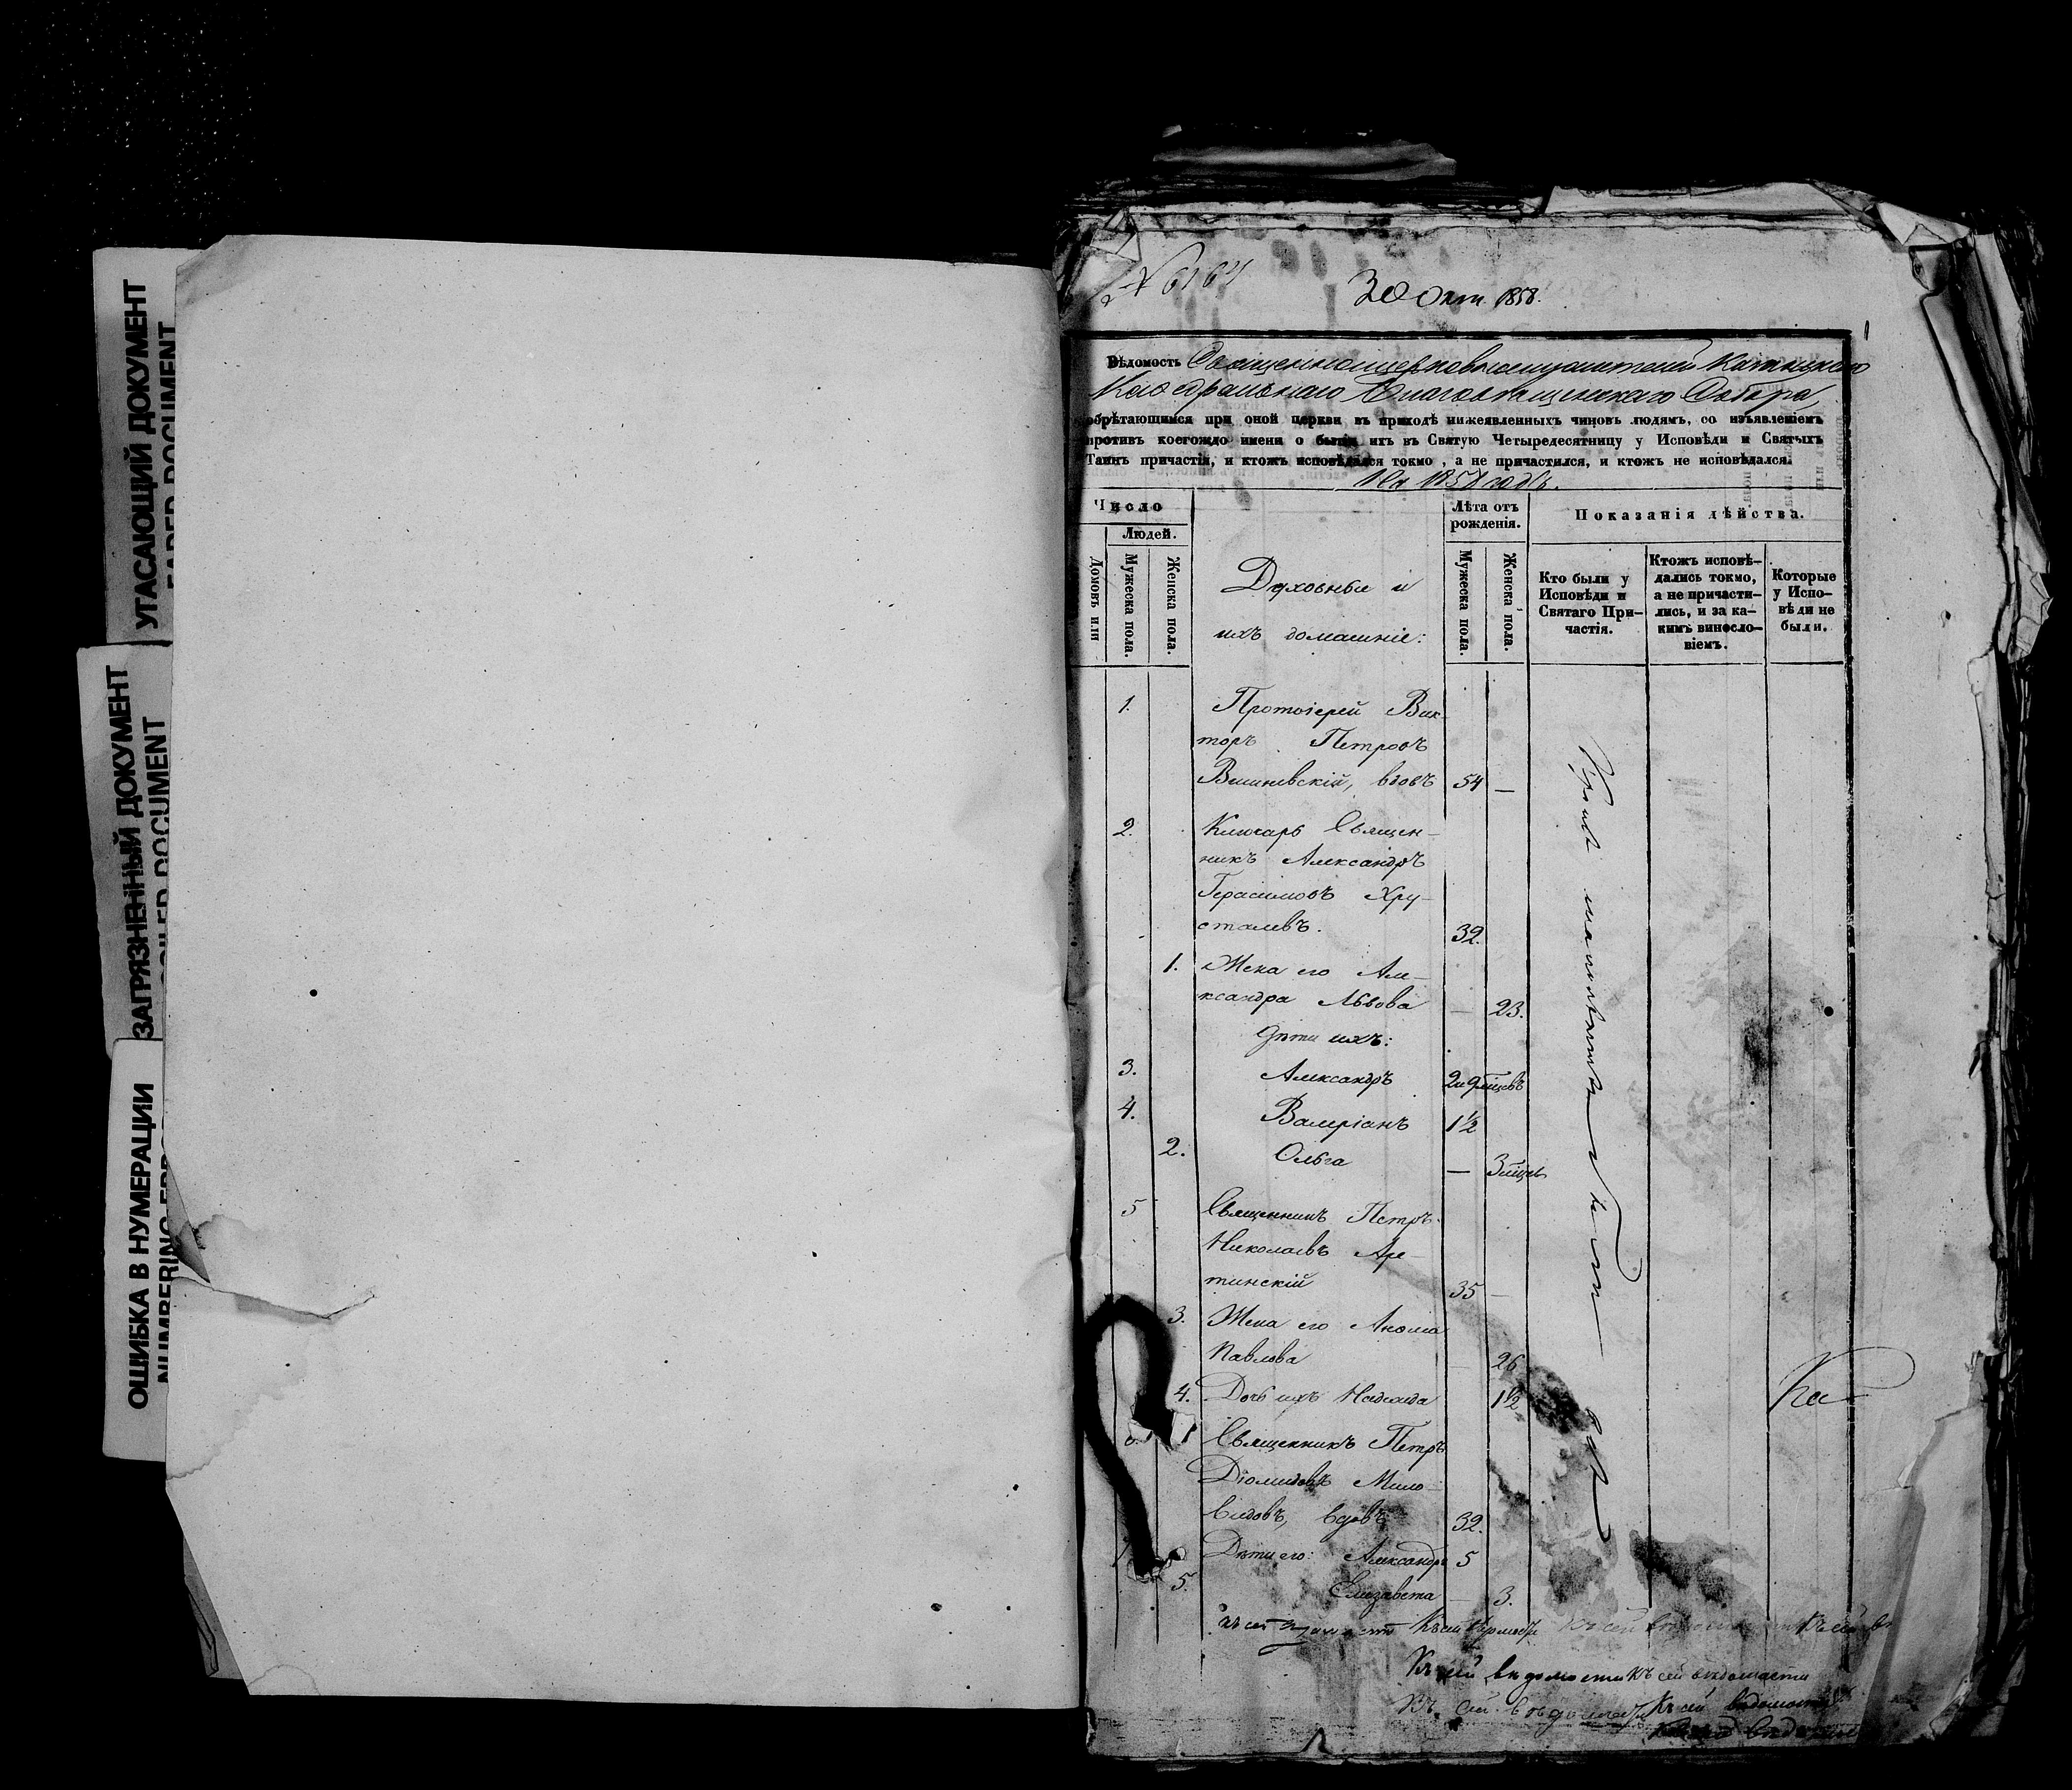 УГАСАЮЩИЙ ДОКУМЕНТ
FADED DOCUMENT
ЗАГРЯЗНЕННЫЙ ДОКУМЕНТ
SOILED DOCUMENT
ОШИБКА В НУМЕРАЦИИ
NUMBERING ERRO
№ 6164
30 Окт. 1858.
1
Вѣдомость Священноцерковнослужителей Казанскаго
Каѳедральнаго Благовѣщенскаго Собора,
обрѣтающимся при оной церкви въ приходѣ нижеявленныхъ чиновъ людямъ, со изъявленіемъ
противъ коегождо имени о бытіи ихъ въ Святую Четыредесятницу у Исповѣди и Святыхъ
Таинъ причастія, и ктожъ исповѣдался токмо, а не причастился, и ктожъ не исповѣдался.
На 1858 годъ.
Число
Людей.
Домовъ или
Мужеска пола.
Женска пола.
Духовные и
ихъ домашніе:
Лѣта отъ
рожденія.
Мужеска пола.
Женска пола.
Показанія дѣйства.
Кто были у
Исповѣди и
Святаго При-
частія.
Ктожъ исповѣ-
дались токмо,
а не причасти-
лись, и за ка-
кимъ виносло-
віемъ.
Которые
у Испо-
вѣди не
были.
1. Протоіерей Вик-
торъ Петровъ
Вишневскій, вдовъ 54 —
2. Ключарь Священ-
никъ Александръ
Герасимовъ Хру-
сталевъ. 32.
1. Жена его Але-
ксандра Львова — 23.
Дѣти ихъ:
3. Александръ 2 и 9 мѣцовъ
4. Валеріанъ 1½
2. Ольга — 3 мѣцев
5 Священникъ Петръ
Николаевъ Аре-
тинскій 35 —
3. Жена его
Павлова — 26
4. Дочь ихъ Надежда 1½
6. Священникъ Петръ
Діомидовъ Мило-
видовъ, вдовъ 32.
Дѣти его: Александръ 5
5. Елизавета — 3.
Къ сей вѣдомости Къ сей вѣдомости
Къ сей вѣдомости Къ сей вѣдомости